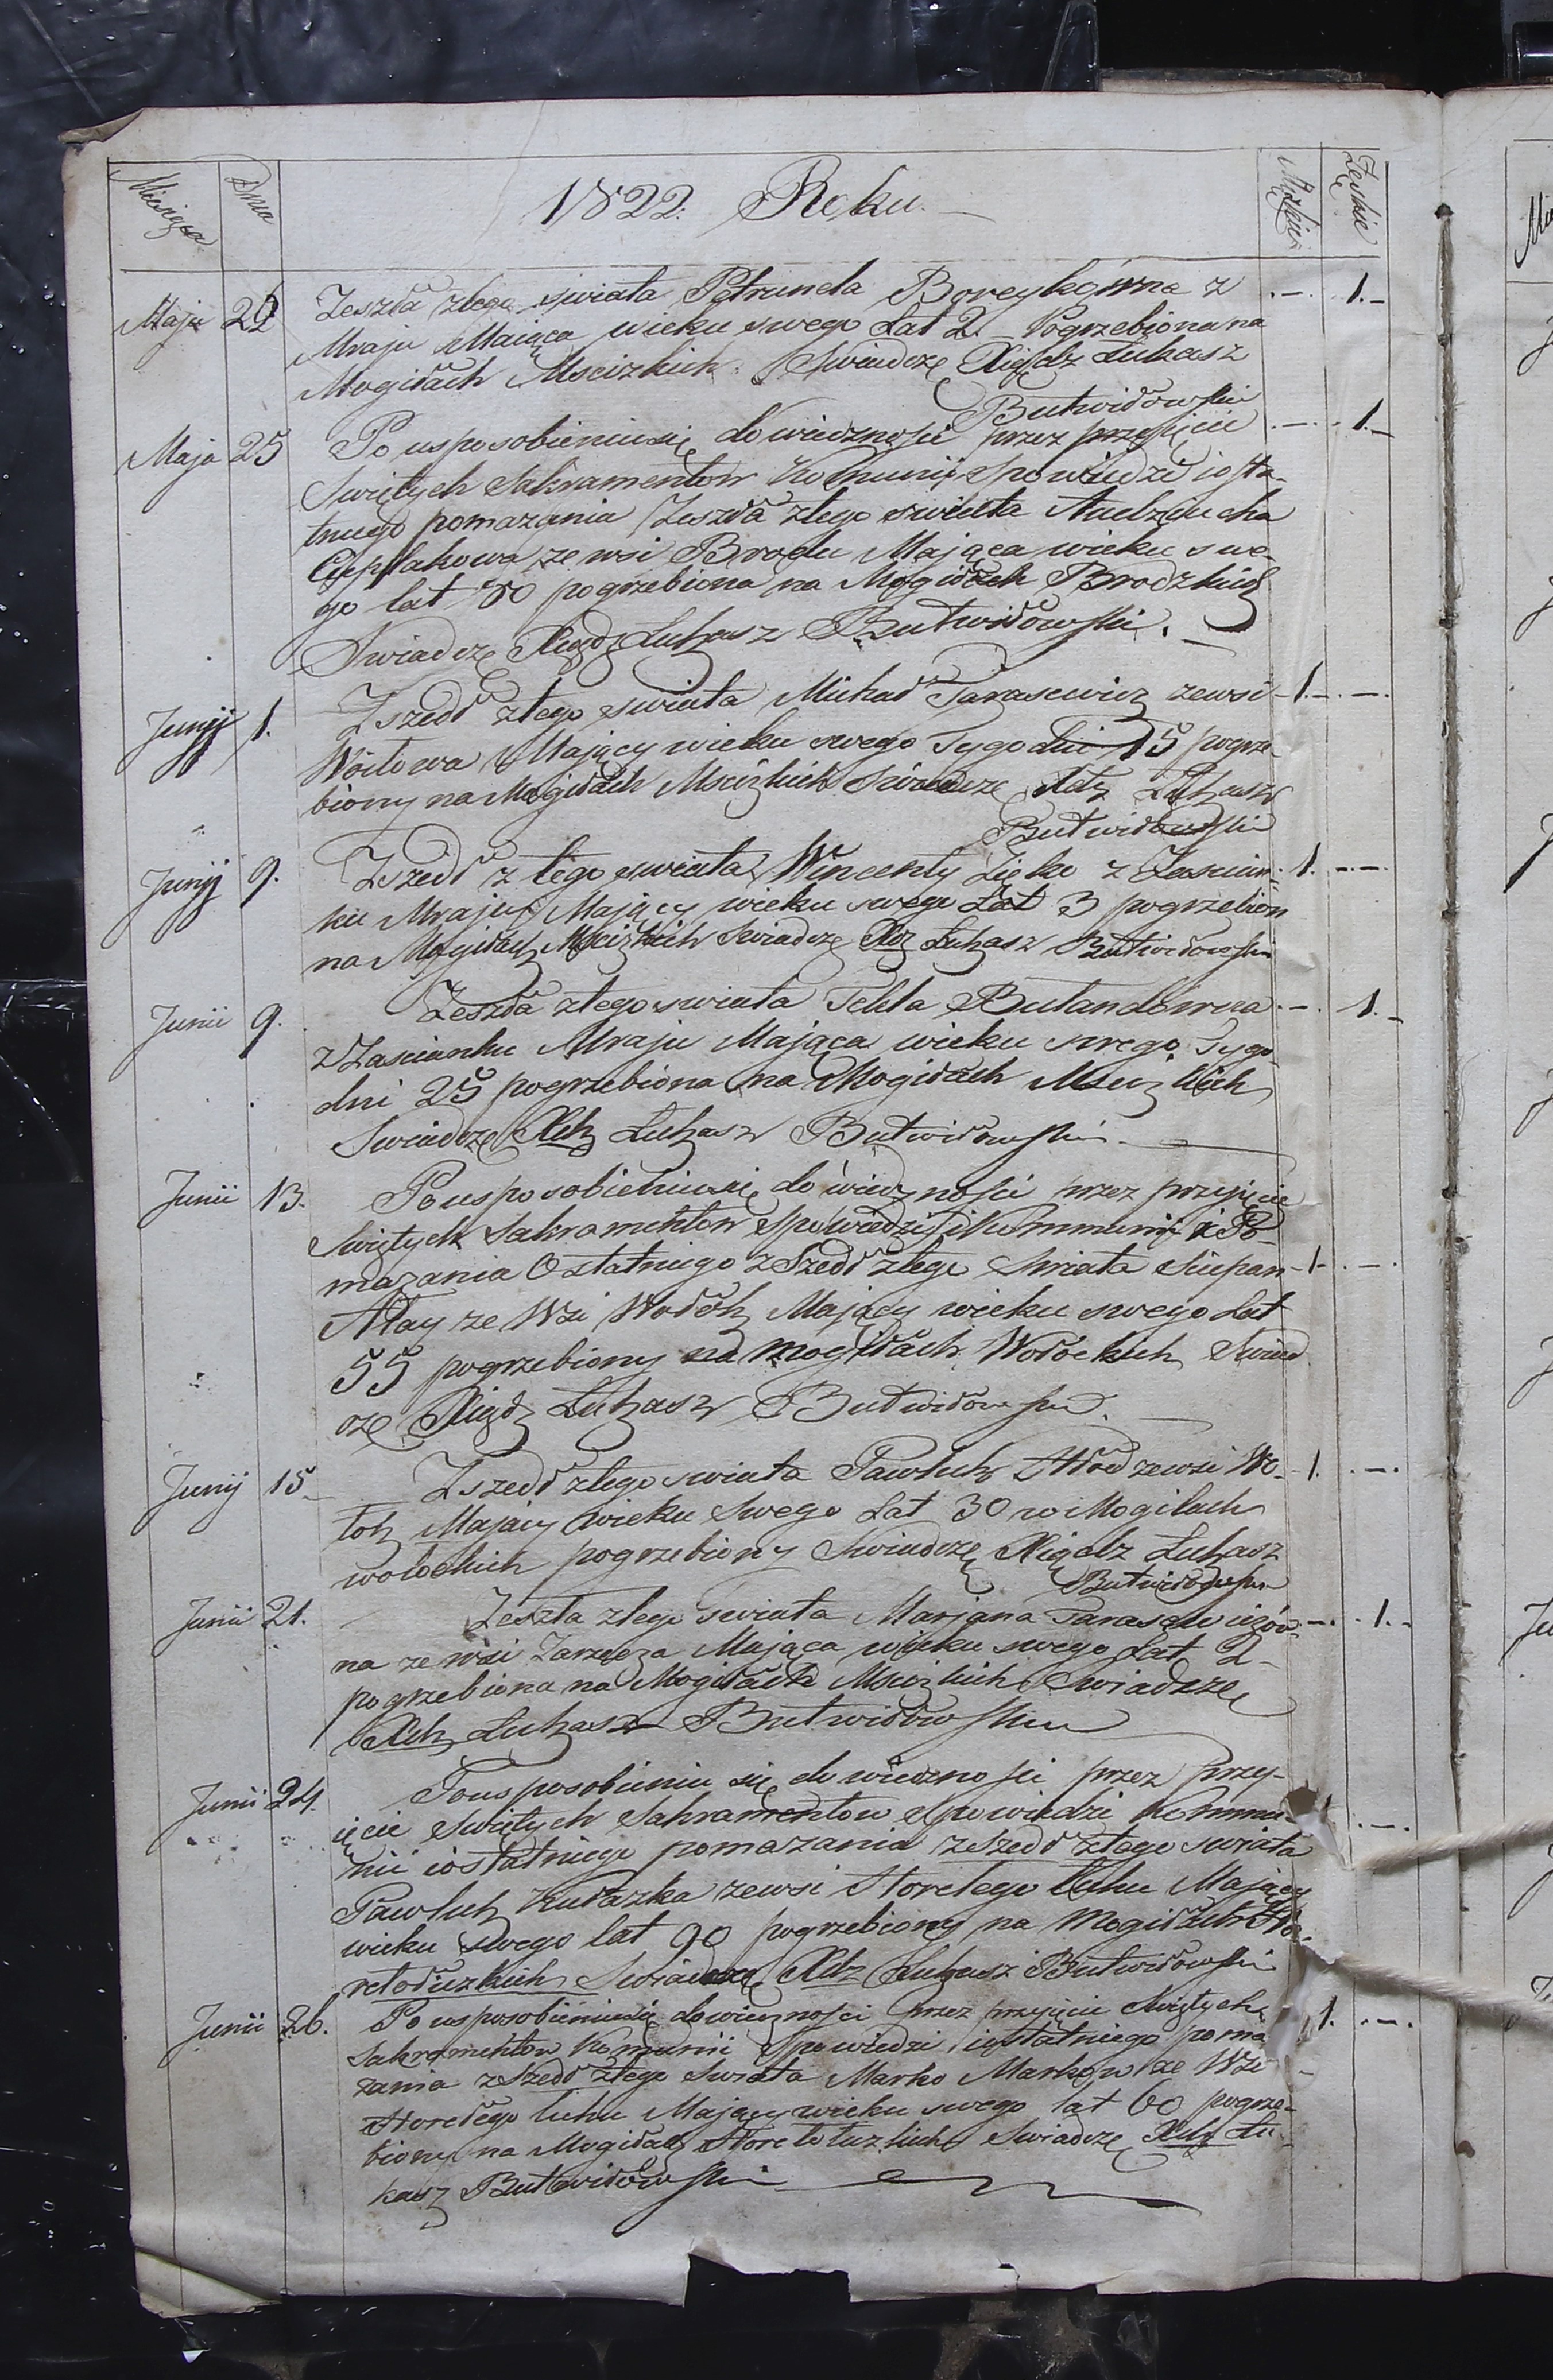 Miesiąca Dnia 1822. Roku. Męzkie Zęskie
Maja 22 Zeszła złego swiata Petrunela Boreykówna z .—. 1.—
Mraju Maiąca wieku swego Lat 2. Pogrzebiona na
Mogiłach Mscizkich. Swiadczę Xiądz Łukasz
Butwiłowski
Maja 25 Po usposobieniu się do wiecznosci przez przyięcie .—. 1.—
Swiętych Sakramentow Kommunii Spowiedzi i osta-
tniego pomazania Zeszła złego swiata Audziucha
ze wsi Brodu Mająca wieku swe-
go lat 50 pogrzebiona na Mogiłach Brodzkich
Swiadczę Xiądz Łukasz Butwiłowski. —
Junij 1. Zszedł złego swiata Michał Tarasewicz zewsi 1.— .—.
Wóitowa Mający wieku swego Tygodni 15 pogrze-
biony na Mogiłach Mscizkich Swiadczę Xdz Łukasz
Butwiłowski
Junij 9. Zszedł z tego swiata Wincenty Zięko z Zascian- 1. .—.
ku Mraju Mający wieku swego Lat 3 pogrzebion
na Mogiłach Mscizkich Swiadczę Xdz Łukasz Butwiłowski
Junii 9. Zeszła złego swiata Tekla Butandówna .—. 1.—
z Zascianku Mraju Mająca wieku swego Tygo-
dni 25 pogrzebiona na Mogiłach Mscizkich
Swiadczę Xdz Łukasz Butwiłowski. —
Junii 13. Po usposobieniu się do wiecznosci przez przyięcie
Swiętych Sakramentow Spowiedzi i Kommunii i Po-
mazania Ostatniego zszedł złego swiata Sciepan 1- .—.
Ałay ze Wsi Wołok Mający wieku swego Lat
55 pogrzebiony na mogiłach Wołockich Swiad
czę Xiądz Łukasz Butwiłowski.
Junij 15 Zszedł złego swiata Pawluk zewsi Wo- 1. .—.
łok Mający wieku Swego Lat 30 na Mogiłach
wołockich pogrzebiony Swiadczę Xiądz Łukasz
Butwiłowski
Junii 21. Zeszła złego Swiata Marjana Tarasewiczów- .—. 1.-
na ze wsi Zarzecza Mająca wieku swego Lat 2-
pogrzebiona na Mogiłach Mscizkich Swiadczę
Xdz Łukasz Butwiłowski
Junii 24. Po usposobieniu się do wiecznosci przez przy-
ięcie Swiętych Sakramentow Spowiedzi Kommu- .—.
nii i ostatniego pomazania zszedł złego swiata
Pawluk Kułazka zewsi Horełego Ługu Mający
wieku swego lat 90 pogrzebiony na Mogiłach Ho-
rełołuzkich Swiadczę Xdz Łukasz Butwiłowski
Junii 26. Po usposobieniu się do wiecznosci przez przyięcie Swiętych 1. .—.
Sakramentow Komunii Spowiedzi i ostatniego poma
zania zszedł złego Swiata Marko Markow ze Wsi
Horełego Ługu Mający wieku swego lat 60 pogrze-
biony na Mogiłach Horełołuzkich Swiadczę Xdz Łu-
kasz Butwiłowski